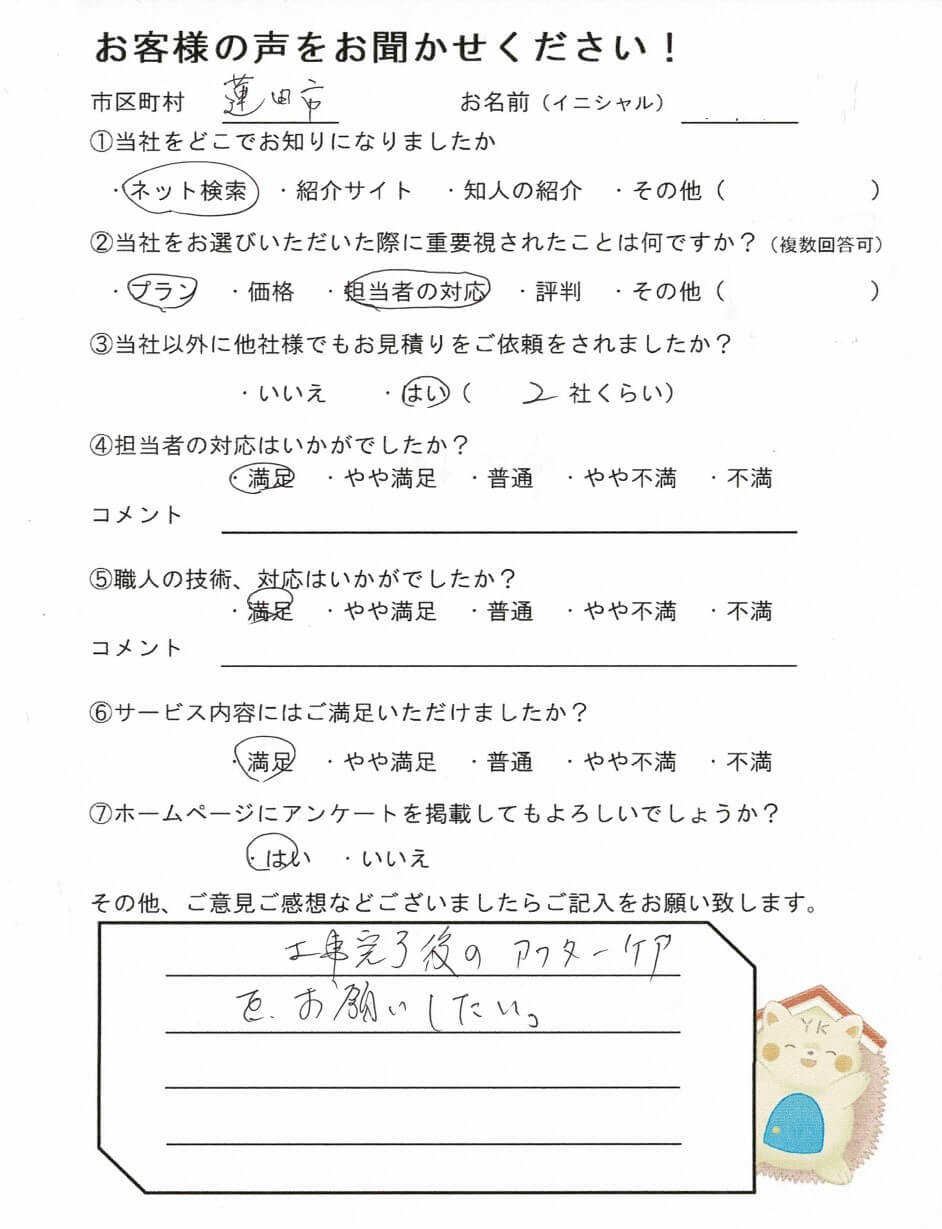 お客様の声をお聞かせください！
市区町村 蓮田市 お名前（イニシャル）
①当社をどこでお知りになりましたか
・ネット検索 ・紹介サイト ・知人の紹介 ・その他（ ）
②当社をお選びいただいた際に重要視されたことは何ですか？（複数回答可）
・プラン ・価格 ・担当者の対応 ・評判 ・その他（ ）
③当社以外に他社様でもお見積りをご依頼をされましたか？
・いいえ ・はい（ 2 社くらい）
④担当者の対応はいかがでしたか？
・満足 ・やや満足 ・普通 ・やや不満 ・不満
コメント
⑤職人の技術、対応はいかがでしたか？
・満足 ・やや満足 ・普通 ・やや不満 ・不満
コメント
⑥サービス内容にはご満足いただけましたか？
・満足 ・やや満足 ・普通 ・やや不満 ・不満
⑦ホームページにアンケートを掲載してもよろしいでしょうか？
・はい ・いいえ
その他、ご意見ご感想などございましたらご記入をお願い致します。
工事完了後のアフターケア
を、お願いしたい。
YK